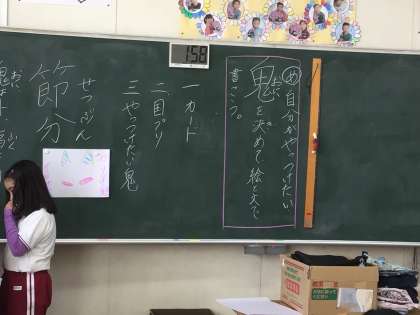 158
め 自分がやっつけたい
鬼を決めて絵と文で
おに
書こう。
一 カード
二 国プリ
三 やっつけたい鬼
せつぶん
節分